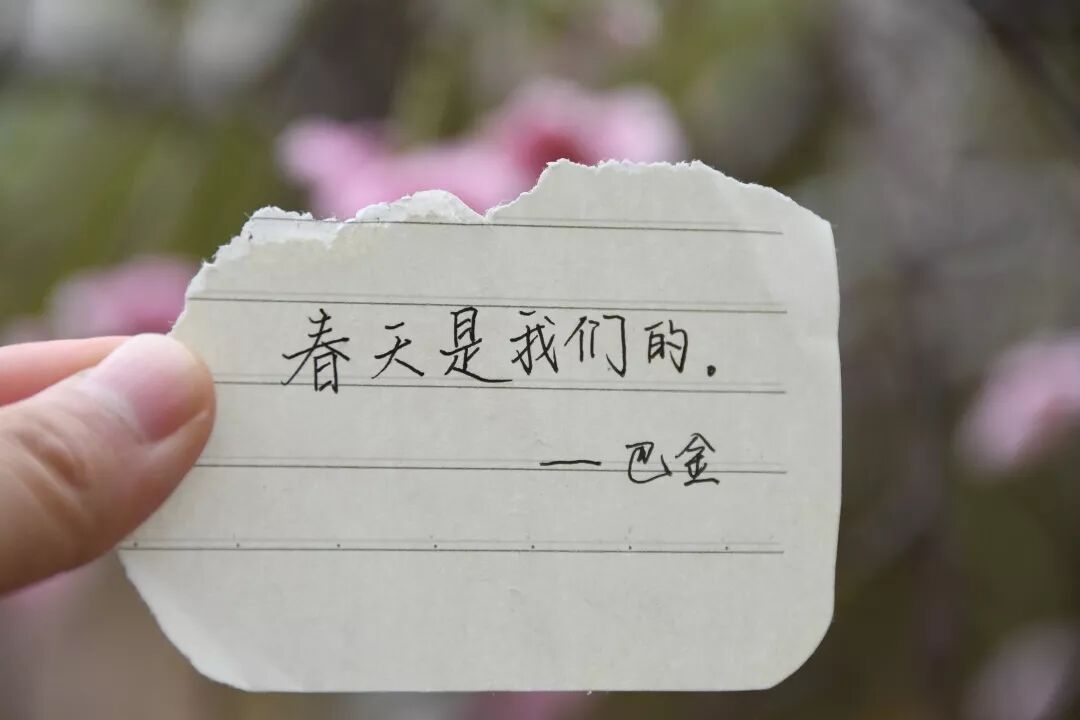 春天是我们的.
—巴金